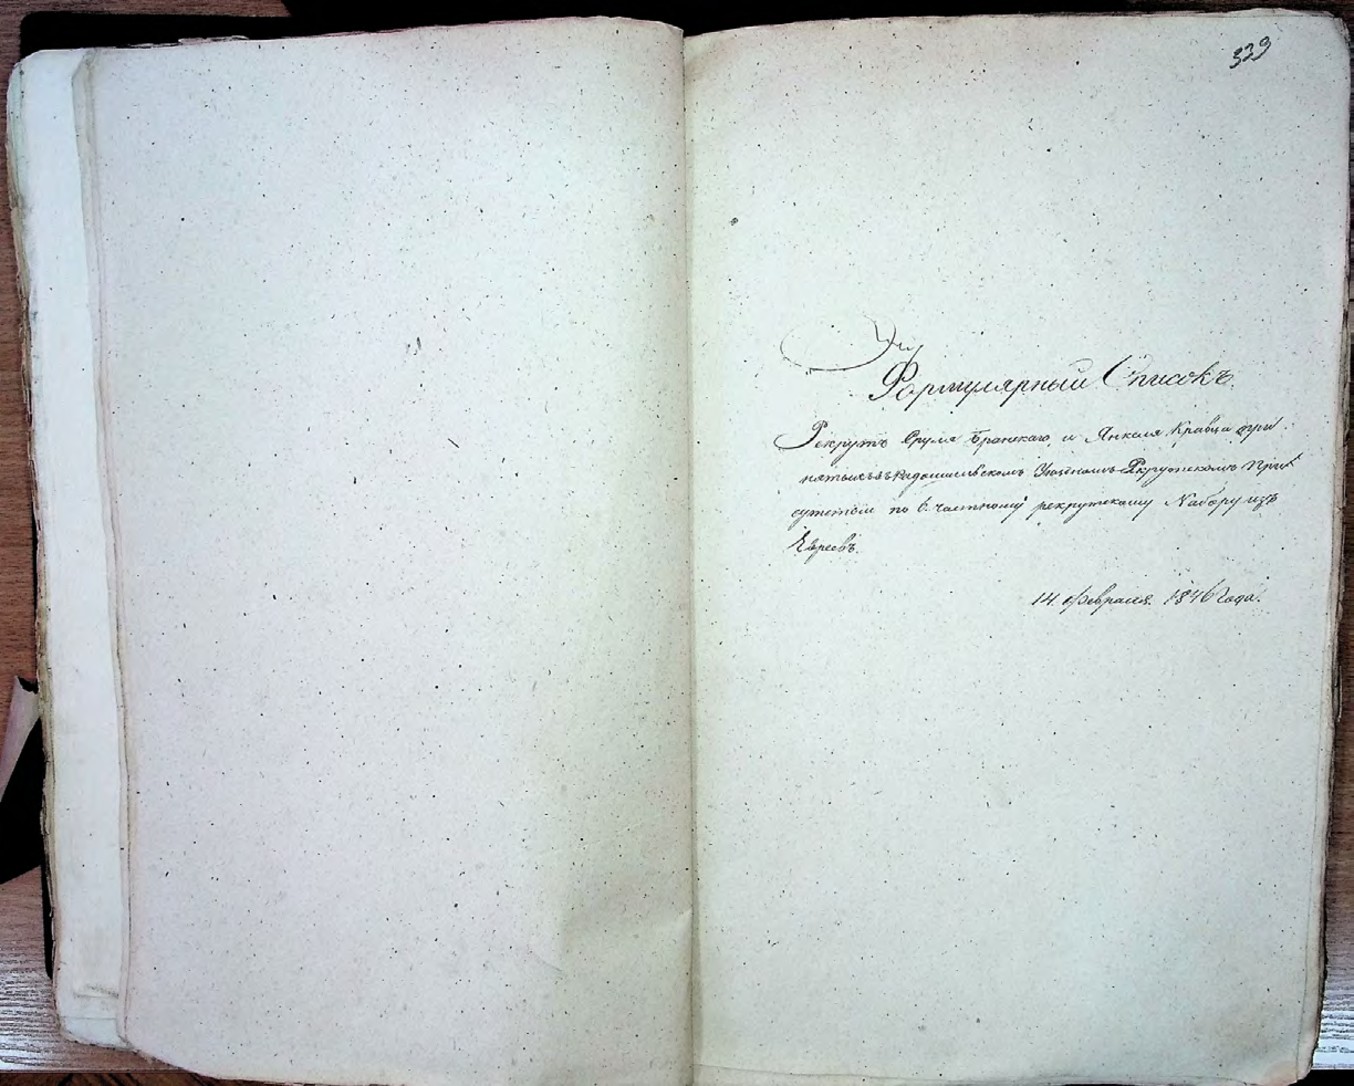 339
Формулярный Списокъ
Рекрутъ Сруля Бранскаго, и Янкеля Кравца при
нятыхъ въ Радомысльскомъ Уѣздномъ Рекрутскомъ При
сутствіи по 6. частному рекрутскому Набору изъ
Евреевъ.
14. Февраля. 1846 Года.